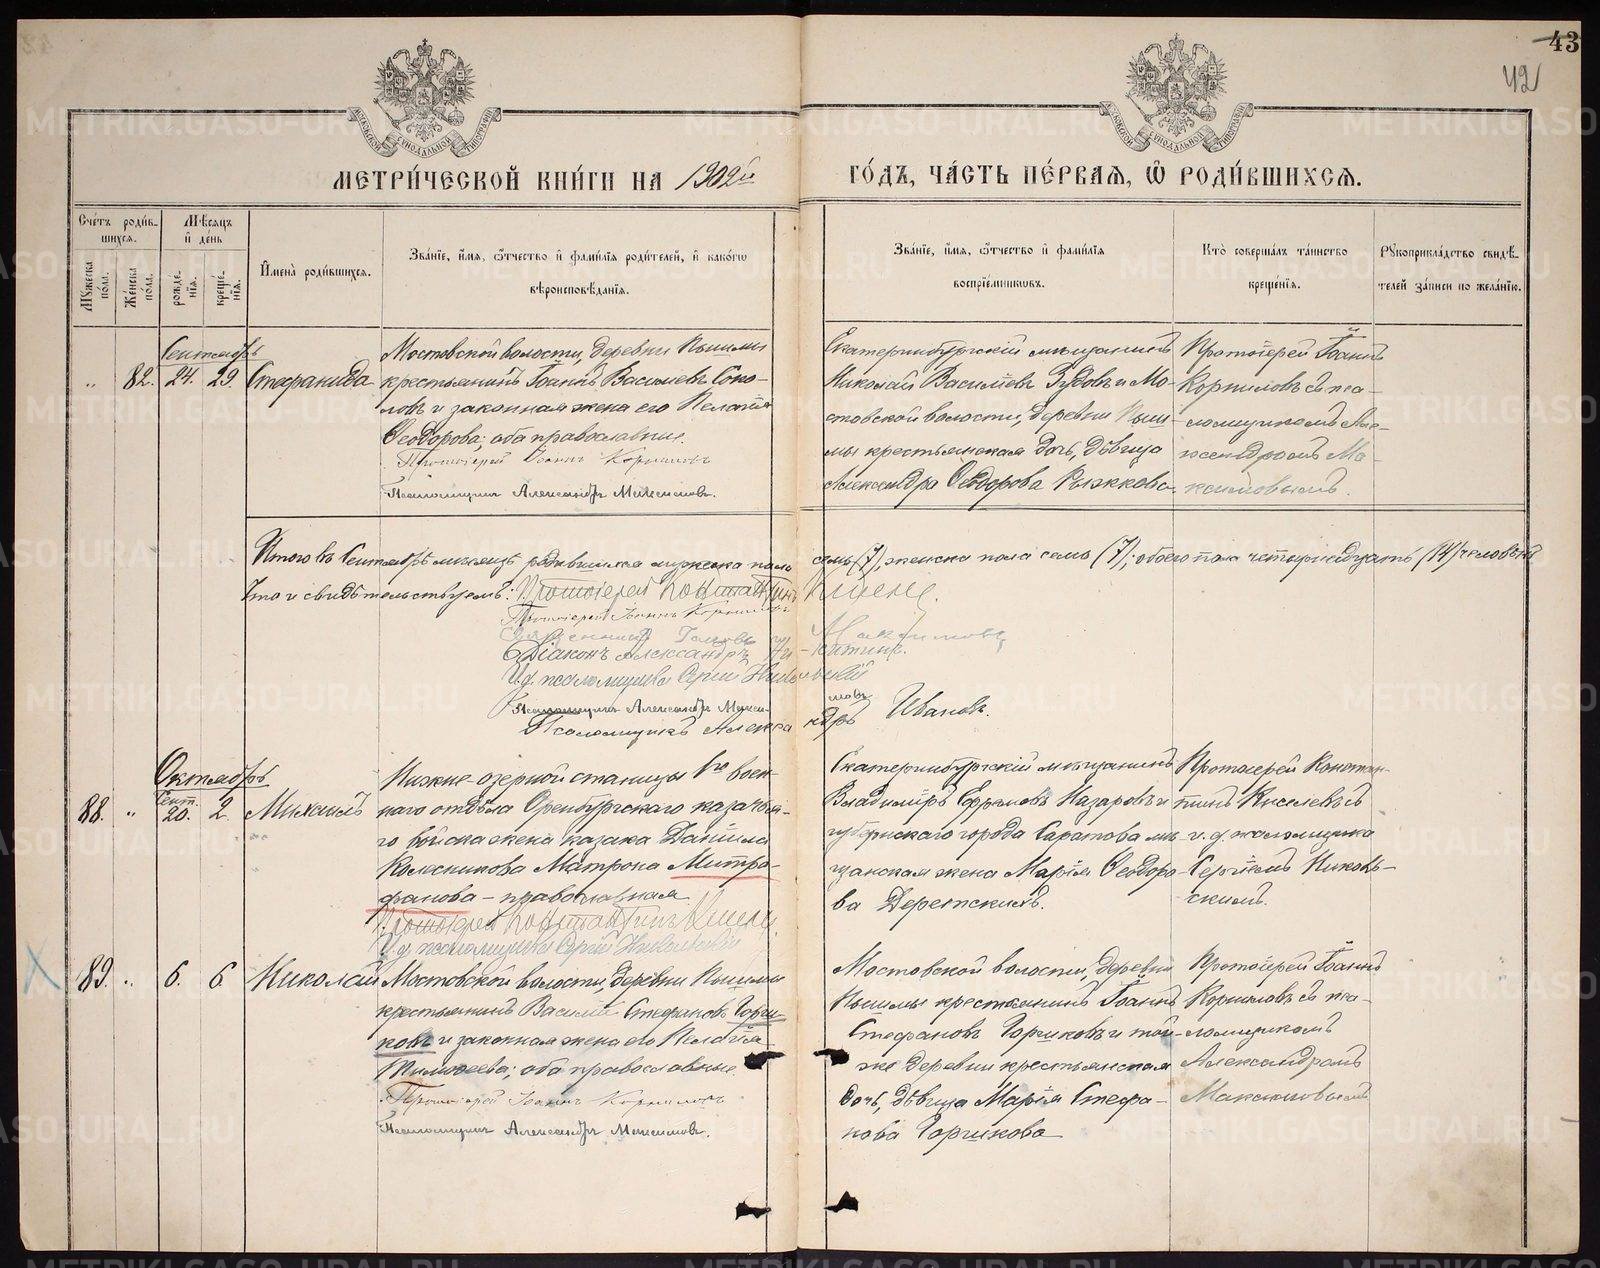 43
42
МЕТРИ́ЧЕСКОЙ КНИ́ГИ НА 1902й
ГО́ДЪ, ЧА́СТЬ ПЕ́РВАЯ, Ѽ РОДИ́ВШИХСЯ.
Сче́тъ роди́в-
шихся.
Му́жеска по́ла.
Же́нска по́ла.
Мѣ́сяцъ
и҆ де́нь
рожде́-
нїя.
креще́-
нїя.
И҆мена̀ роди́вшихся.
Зва́нїе, и҆́мя, ѻ҆́тчество и҆ фами́лїя роди́телей, и҆ како́гѡ
вѣроисповѣ́данїя.
Зва́нїе, и҆́мя, ѻ҆́тчество и҆ фами́лїя
воспрїе́мникѡвъ.
Кто̀ соверша́лъ та́инство
креще́нїя.
Рꙋкоприкла́дство свидѣ́-
телей за́писи по жела́нїю.
Сентябрь
„ 82. 24. 29. Стефанида
Мостовской волости, деревни Пышмы
крестьянинъ Іоаннъ Васильевъ Соко-
ловъ и законная жена его Пелагія
Ѳеодорова; оба православные.
Протоіерей Іоаннъ Корниловъ
Псаломщикъ Александръ Максимовъ.
Екатеринбургскій мѣщанинъ
Николай Васильевъ Зубовъ и Мо-
стовской волости, деревни Пыш-
мы крестьянская дочь, дѣвица
Александра Ѳеодорова Рыжкова
Протоіерей Іоаннъ
Корниловъ съ пса-
ломщикомъ Але-
ксандромъ Ма-
ксимовымъ.
Итого въ Сентябрѣ мѣсяцѣ родившихся мужеска пола семь (7), женска пола семь (7); обоего пола четырнадцать (14) человѣкъ
Что и свидѣтельствуемъ: Протоіерей Константинъ
Протоіерей Іоаннъ Корниловъ
Священникъ
Діаконъ Александръ
И. д. псаломщика Сергій Никольскій
Псаломщикъ Александръ Максимовъ
Псаломщикъ Александръ Ивановъ.
Октябрь
Сент.
88. „ 20. 2. Михаилъ
Нижне-озерной станицы 1го воен-
наго отдѣла Оренбургскаго казачья-
го войска жена казака Даніила
Колесникова Матрона Митро-
фанова – православная
Протоіерей Константинъ
И. д. псаломщика Сергій Никольскій
Екатеринбургскій мѣщанинъ
Владиміръ Ефремовъ Назаровъ и
губернскаго города Саратова мѣ-
щанская жена Марія Ѳеодоро-
ва
Протоіерей Констан-
тинъ Киселевъ съ
и. д. псаломщика
Сергіемъ Николь-
скимъ.
89. „ 6. 6. Николай
Мостовской волости, деревни Пышмы
крестьянинъ Василій Стефановъ Горши-
ковъ и законная жена его Пелагія
Тимоѳеева; оба православные.
Протоіерей Іоаннъ Корниловъ
Псаломщикъ Александръ Максимовъ.
Мостовской волости, деревни
Пышмы крестьянинъ Іоаннъ
Стефановъ Горшиковъ и той-
же деревни крестьянская
дочь, дѣвица Марія Стефа-
нова Горшикова
Протоіерей Іоаннъ
Корниловъ съ пса-
ломщикомъ
Александромъ
Максимовымъ